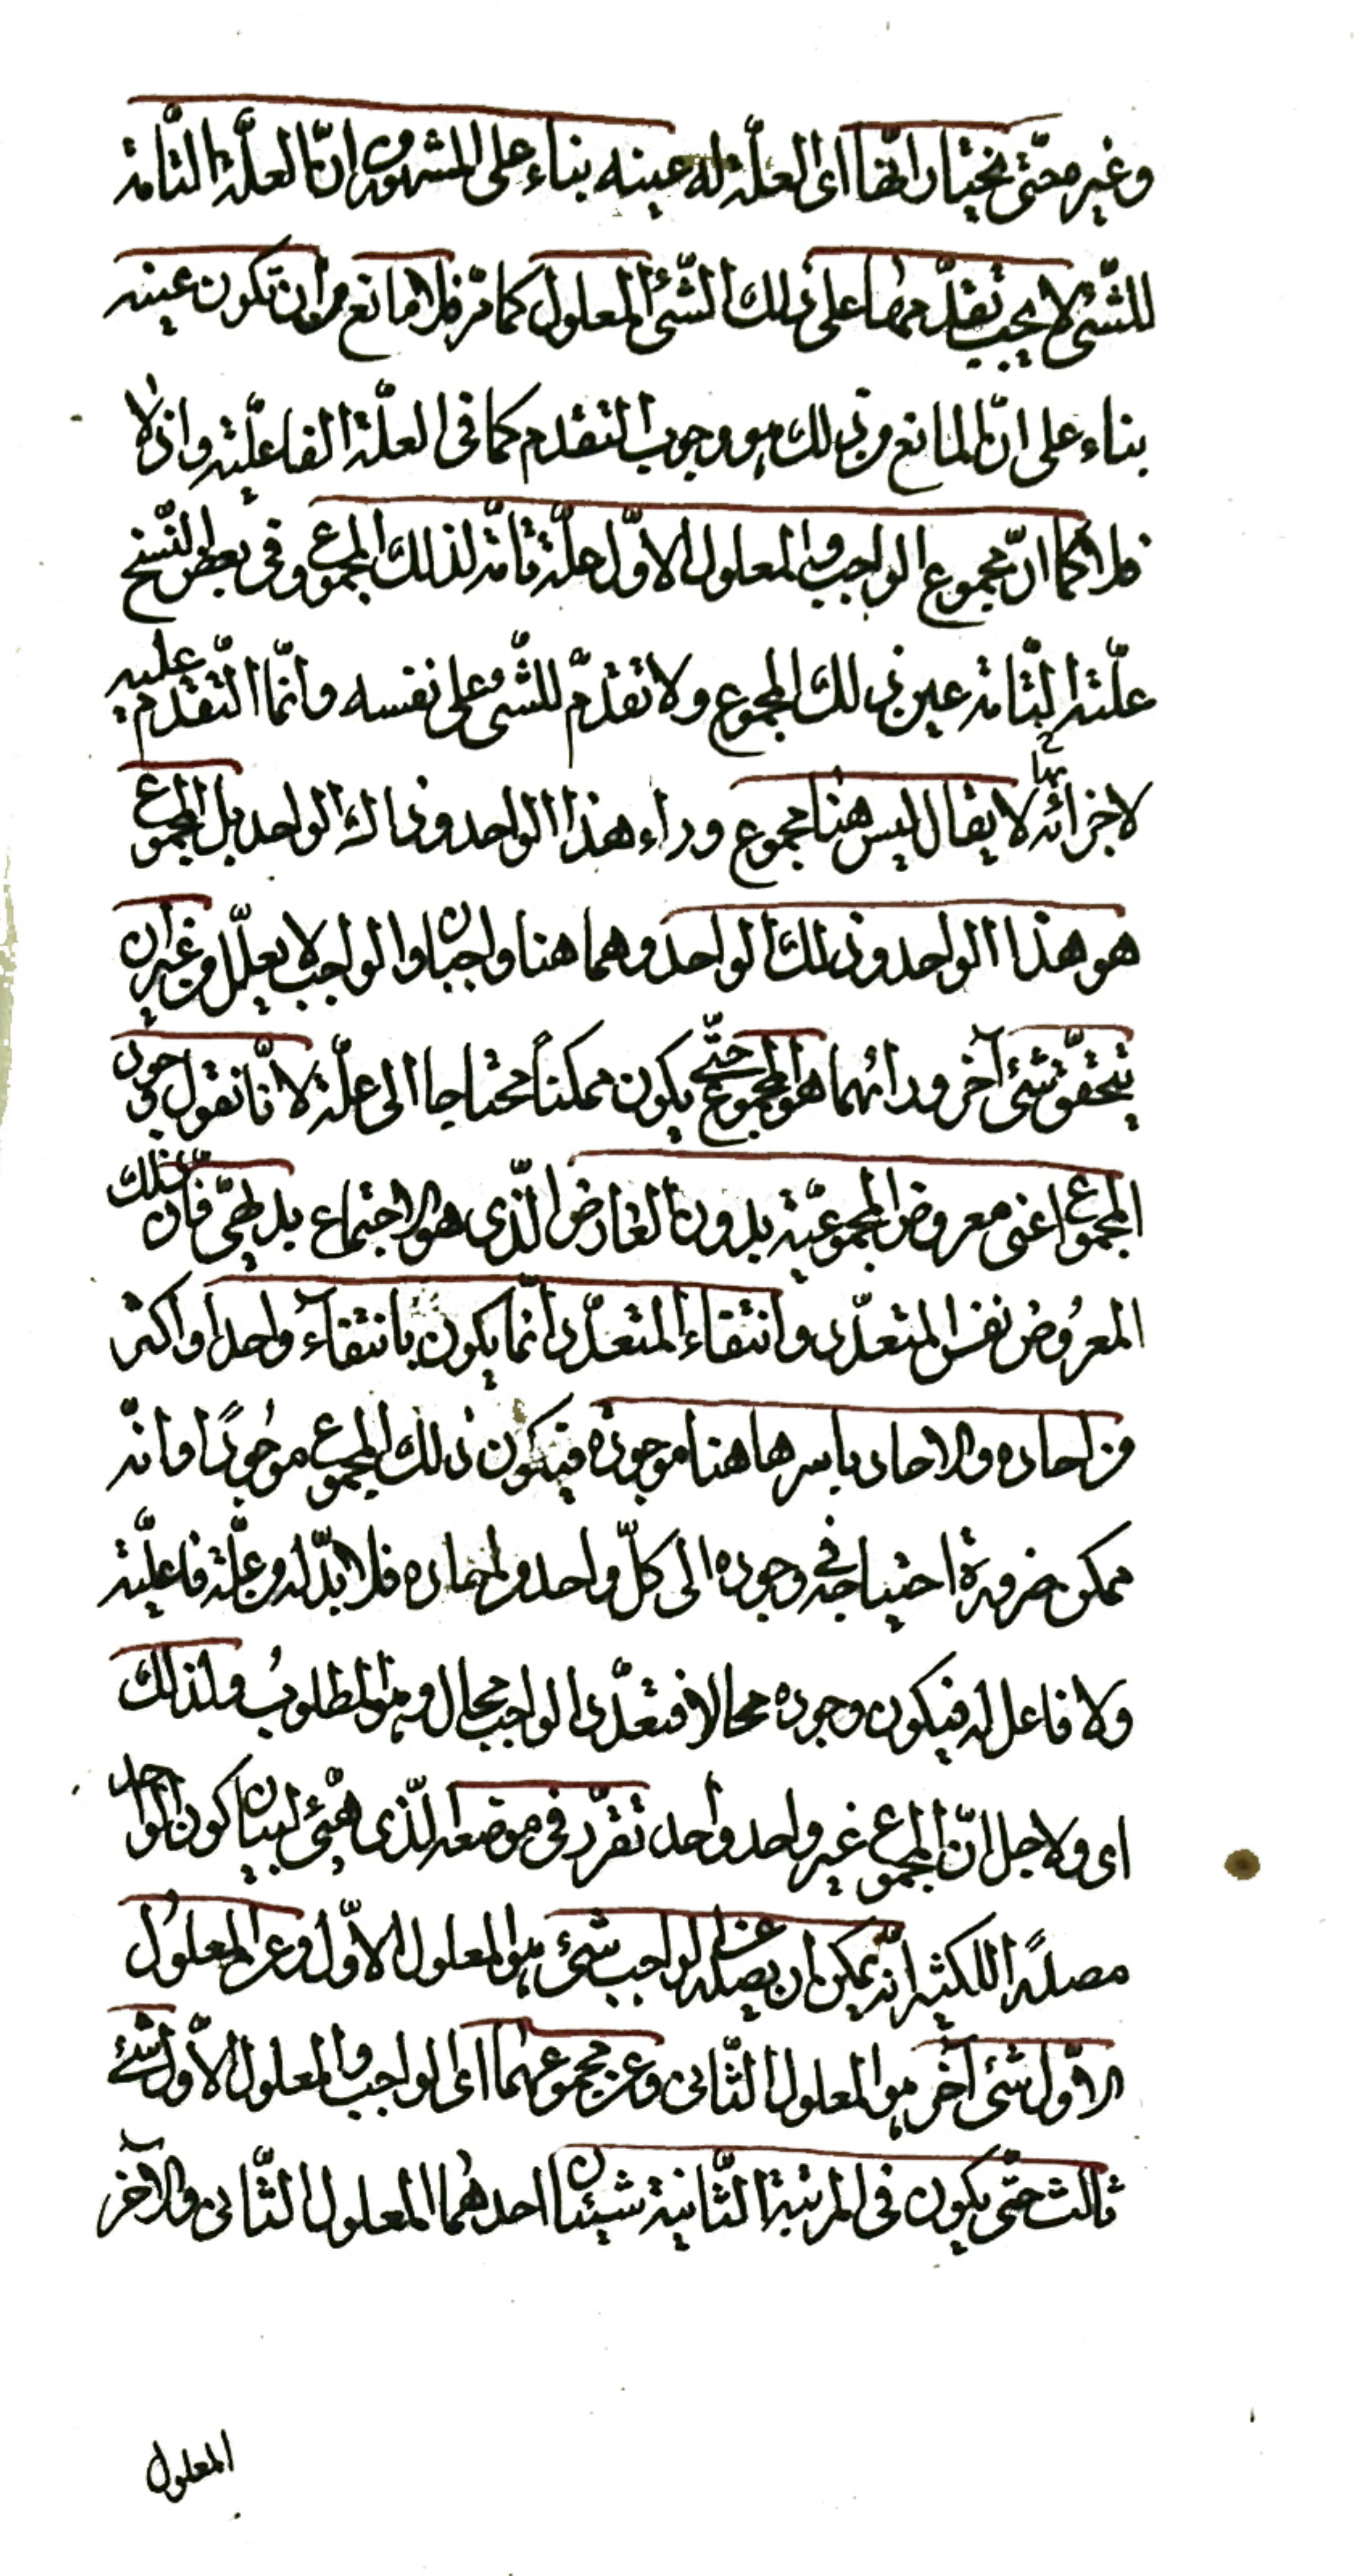 وغير محتى نختار انها اى العلّة له عينه بناء على المشهور من انّ العلّة التّامة
للشّئ لا يجب تقدّمها على ذلك الشّئ المعلول كما مرّ فلا مانع من ان تكون عينه
بناء على انّ المانع من ذلك هو وجوب التقدم كما فى العلّة الفاعليّة واذ لا
فلا كما انّ مجموع الواجب والمعلول الاوّل علّة تامّة لذلك المجموع وفى بعض النّسخ
علّته التّامة عين ذلك المجموع ولا تقدّم للشّئ على نفسه وانّما التّقدّم عليه
لاجزائه لا يقال ليس هنا مجموع وراء هذا الواحد وذاك الواحد بل المجموع
هو هذا الواحد وذلك الواحد وهما هنا واجبان والواجب لا يعلّل من غير ان
يتحقّق شئ آخر ورائهما هو المجموع حتّى يكون ممكناً محتاجا الى علّة لانّا نقول وجود
المجموع اعنى معروض المجموعيّة بدون العارض الّذى هو الاجتماع بديهىّ فانّ ذلك
المعرُوض نفس المتعدّد وانتفاء المتعدّد انّما يكون بانتفاء واحد او اكثر
من احاده والاحاد باسرها هنا موجودة فيكون ذلك المجموع موجُودًا وانّه
ممكن ضرورة احتياجه فى وجوده الى كلّ واحد من احاده فلا بدّ له من علّة فاعليّة
ولا فاعل له فيكون وجوده محالا فتعدّد الواجب محال وهو المطلوبُ ولذلك
اى ولاجل انّ المجموع غير واحد واحد تقرّر فى موضعه الّذى هيّئ لبيان كون الواحد
مصدرًا للكثير انّه يمكن ان يصدر عن الواجب شئ هو المعلول الاوّل وعن المعلول
الاوّل شئ آخر هو المعلول الثّانى وعن مجموعهما اى الواجب والمعلول الاوّل شئ
ثالث حتّى يكون فى المرتبة الثّانية شيئان احدهُما المعلول الثّانى والآخر
المعلول